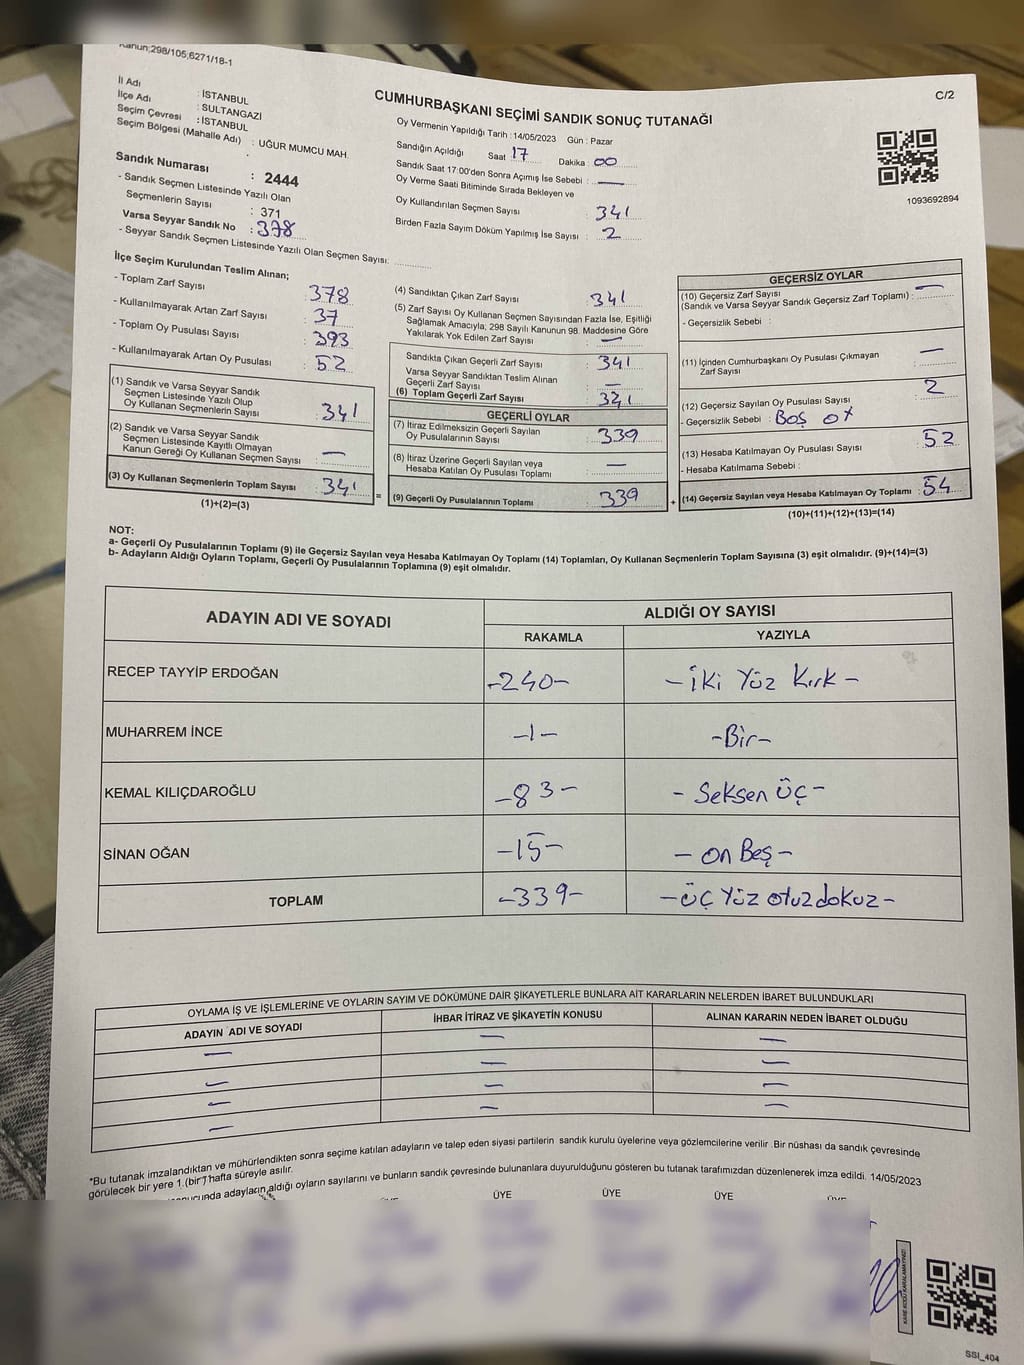 Kanun;298/105;6271/18-1
C/2
İl Adı : İSTANBUL
İlçe Adı : SULTANGAZİ
Seçim Çevresi : İSTANBUL
Seçim Bölgesi (Mahalle Adı) : UĞUR MUMCU MAH.
Sandık Numarası : 2444
- Sandık Seçmen Listesinde Yazılı Olan
Seçmenlerin Sayısı : 371
Varsa Seyyar Sandık No : 378
- Seyyar Sandık Seçmen Listesinde Yazılı Olan Seçmen Sayısı:
CUMHURBAŞKANI SEÇİMİ SANDIK SONUÇ TUTANAĞI
Oy Vermenin Yapıldığı Tarih : 14/05/2023 Gün : Pazar
Sandığın Açıldığı Saat 17 Dakika 00
Sandık Saat 17:00'den Sonra Açımış İse Sebebi : —
Oy Verme Saati Bitiminde Sırada Bekleyen ve
Oy Kullandırılan Seçmen Sayısı : 341
Birden Fazla Sayım Döküm Yapılmış İse Sayısı : 2
1093692894
İlçe Seçim Kurulundan Teslim Alınan;
- Toplam Zarf Sayısı : 378
- Kullanılmayarak Artan Zarf Sayısı : 37
- Toplam Oy Pusulası Sayısı : 393
- Kullanılmayarak Artan Oy Pusulası : 52
(1) Sandık ve Varsa Seyyar Sandık
Seçmen Listesinde Yazılı Olup
Oy Kullanan Seçmenlerin Sayısı : 341
(2) Sandık ve Varsa Seyyar Sandık
Seçmen Listesinde Kayıtlı Olmayan
Kanun Gereği Oy Kullanan Seçmen Sayısı : —
(3) Oy Kullanan Seçmenlerin Toplam Sayısı : 341
(1)+(2)=(3)
=
(4) Sandıktan Çıkan Zarf Sayısı : 341
(5) Zarf Sayısı Oy Kullanan Seçmen Sayısından Fazla İse, Eşitliği
Sağlamak Amacıyla; 298 Sayılı Kanunun 98. Maddesine Göre
Yakılarak Yok Edilen Zarf Sayısı : —
Sandıkta Çıkan Geçerli Zarf Sayısı : 341
Varsa Seyyar Sandıktan Teslim Alınan
Geçerli Zarf Sayısı : —
(6) Toplam Geçerli Zarf Sayısı : 341
GEÇERLİ OYLAR
(7) İtiraz Edilmeksizin Geçerli Sayılan
Oy Pusulalarının Sayısı : 339
(8) İtiraz Üzerine Geçerli Sayılan veya
Hesaba Katılan Oy Pusulası Toplamı : —
(9) Geçerli Oy Pusulalarının Toplamı : 339
+
GEÇERSİZ OYLAR
(10) Geçersiz Zarf Sayısı
(Sandık ve Varsa Seyyar Sandık Geçersiz Zarf Toplamı) : —
- Geçersizlik Sebebi :
(11) İçinden Cumhurbaşkanı Oy Pusulası Çıkmayan
Zarf Sayısı : —
(12) Geçersiz Sayılan Oy Pusulası Sayısı : 2
- Geçersizlik Sebebi : BOŞ oy
(13) Hesaba Katılmayan Oy Pusulası Sayısı : 52
- Hesaba Katılmama Sebebi :
(14) Geçersiz Sayılan veya Hesaba Katılmayan Oy Toplamı : 54
(10)+(11)+(12)+(13)=(14)
NOT:
a- Geçerli Oy Pusulalarının Toplamı (9) ile Geçersiz Sayılan veya Hesaba Katılmayan Oy Toplamı (14) Toplamları, Oy Kullanan Seçmenlerin Toplam Sayısına (3) eşit olmalıdır. (9)+(14)=(3)
b- Adayların Aldığı Oyların Toplamı, Geçerli Oy Pusulalarının Toplamına (9) eşit olmalıdır.
ADAYIN ADI VE SOYADI ALDIĞI OY SAYISI
RAKAMLA YAZIYLA
RECEP TAYYİP ERDOĞAN -240- -iki Yüz Kırk-
MUHARREM İNCE -1- -Bir-
KEMAL KILIÇDAROĞLU -83- -Seksen Üç-
SİNAN OĞAN -15- -on Beş-
TOPLAM -339- -üç Yüz otuz dokuz-
OYLAMA İŞ VE İŞLEMLERİNE VE OYLARIN SAYIM VE DÖKÜMÜNE DAİR ŞİKAYETLERLE BUNLARA AİT KARARLARIN NELERDEN İBARET BULUNDUKLARI
ADAYIN ADI VE SOYADI İHBAR İTİRAZ VE ŞİKAYETİN KONUSU ALINAN KARARIN NEDEN İBARET OLDUĞU
— — —
— — —
— — —
— — —
*Bu tutanak imzalandıktan ve mühürlendikten sonra seçime katılan adayların ve talep eden siyasi partilerin sandık kurulu üyelerine veya gözlemcilerine verilir .Bir nüshası da sandık çevresinde
görülecek bir yere 1.(bir) hafta süreyle asılır.
adayların aldığı oyların sayılarını ve bunların sandık çevresinde bulunanlara duyurulduğunu gösteren bu tutanak tarafımızdan düzenlenerek imza edildi. 14/05/2023
ÜYE ÜYE ÜYE
KARE KODU KARALAMAYINIZ!
SSI_404